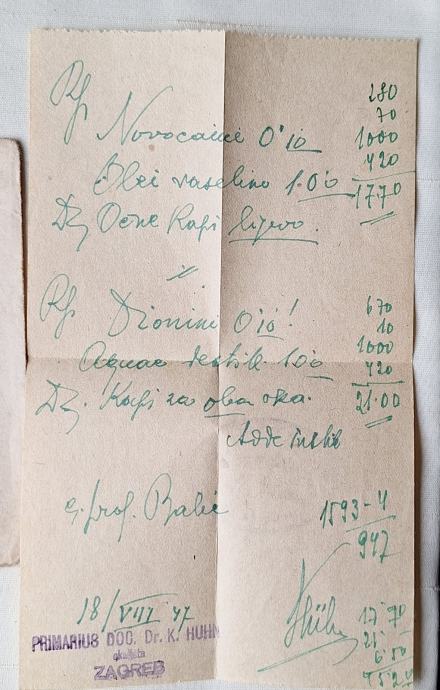 Rp.
280
70
Novocaini 0'10 1000
420
Olei vaselini 1.00 1770
DS Ocne Kapi lijevo.
Rp. Dionini 0'10! 670
10
Aquae destill. 100 1000
420
DS. Kapi za oba oka. 21.00
Adde instil
g. prof. Balić
1593-4
947
18/VIII 47
PRIMARIUS DOC. Dr. K. HUHN
okulista
ZAGREB
17 70
21